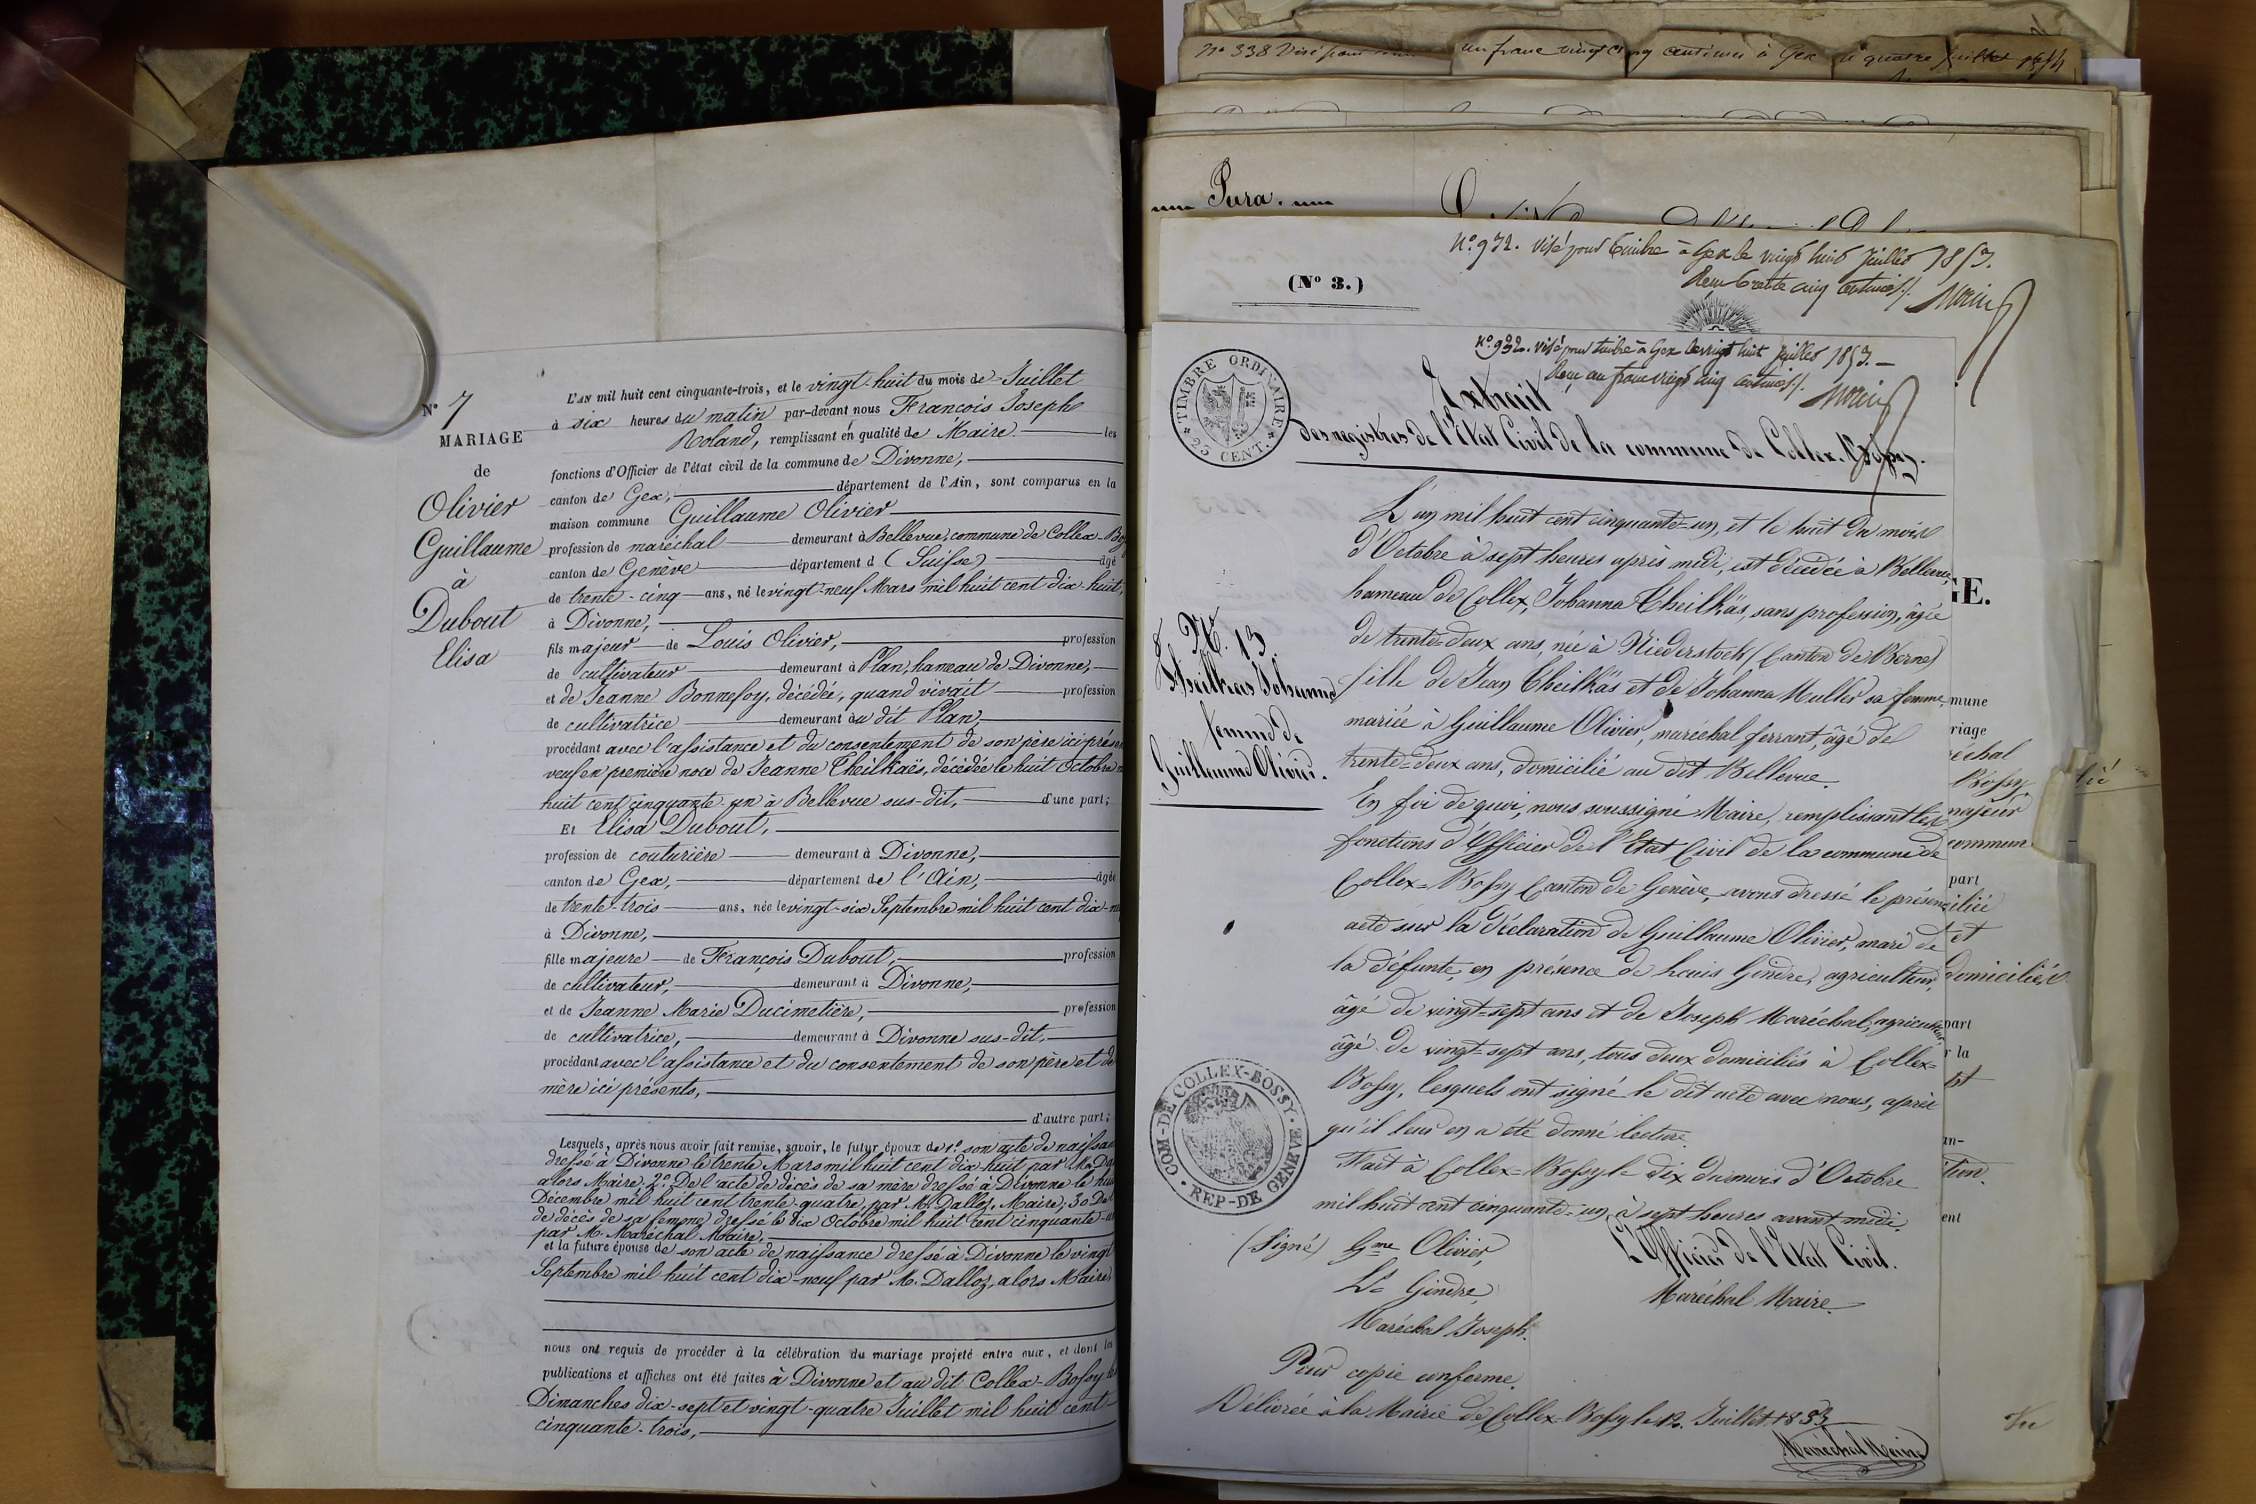 N° 7
MARIAGE
de
Olivier
Guillaume
à
Dubout
Elisa
L'AN mil huit cent cinquante-trois, et le vingt-huit du mois de Juillet
à six heures du matin par-devant nous François Joseph
Roland, remplissant en qualité de Maire les
fonctions d'Officier de l'état civil de la commune de Divonne,
canton de Gex, département de l'Ain, sont comparus en la
maison commune Guillaume Olivier
profession de maréchal demeurant à Bellevue, commune de Collex-Bo
canton de Genève département d (Suisse) âgé
de trente-cinq ans, né le vingt-neuf Mars mil huit cent dix-huit,
à Divonne,
fils majeur de Louis Olivier, profession
de cultivateur demeurant à Plan, hameau de Divonne,
et de Jeanne Bonnefoy, décédée, quand vivait profession
de cultivatrice demeurant au dit Plan,
procédant avec l'assistance et du consentement de son père ici prése
veuf en première noce de Jeanne Theilkaës, décédée le huit Octobre
huit cent cinquante-un à Bellevue sus-dit, d'une part;
Et Elisa Dubout,
profession de couturière demeurant à Divonne,
canton de Gex, département de l'Ain, âgée
de trente-trois ans, née le vingt-six Septembre mil huit cent dix-n
à Divonne,
fille majeure de François Dubout, profession
de cultivateur, demeurant à Divonne,
et de Jeanne Marie Ducimetière, profession
de cultivatrice, demeurant à Divonne sus-dit,
procédant avec l'assistance et du consentement de son père et de
mère ici présents,
d'autre part;
Lesquels, après nous avoir fait remise, savoir, le futur époux de 1° son acte de naissan
dressé à Divonne le trente Mars mil huit cent dix-huit par Mr. Da
alors Maire; 2° De l'acte de décès de sa mère dressé à Divonne le hui
Décembre mil huit cent trente-quatre, par M. Dalloz, Maire; 3° De
de décès de sa femme dressé le dix Octobre mil huit cent cinquante-un
par M. Maréchal Maire,
et la future épouse de son acte de naissance dressé à Divonne le vingt
Septembre mil huit cent dix-neuf par M. Dalloz, alors Maire
nous ont requis de procéder à la célébration du mariage projeté entre eux, et dont les
publications et affiches ont été faites à Divonne et au dit Collex-Bossy les
Dimanches dix-sept et vingt-quatre Juillet mil huit cent
cinquante-trois,
N° 338 Visé pour un franc vingt cinq centimes à Gex le quatre Juillet
Jura.
N° 932. Visé pour timbre à Gex le vingt huit Juillet 1853.
Reçu trente cinq centimes
Morin
(N° 3.)
N° 932. Visé pour timbre à Gex le vingt huit Juillet 1853.
Reçu un franc vingt cinq centimes
Morin
TIMBRE ORDINAIRE
25 CENT.
Extrait
des registres de l'Etat Civil de la commune de Collex-Bossy.
N°. 13.
Theilkas Johanna
femme de
Guillaume Olivier.
L'an mil huit cent cinquante-un, et le huit du mois
d'Octobre à sept heures après midi, est décédée à Bellevue,
hameau de Collex, Johanna Theilkäs, sans profession, âgée
de trente-deux ans, née à Niederstock (Canton de Berne)
fille de Jean Theilkäs et de Johanna Muller sa femme,
mariée à Guillaume Olivier, maréchal ferrant, âgé de
trente-deux ans, domicilié au dit Bellevue.
En foi de quoi, nous soussigné Maire, remplissant les
fonctions d'Officier de l'Etat Civil de la commune de
Collex-Bossy Canton de Genève, avons dressé le présent
acte sur la déclaration de Guillaume Olivier, mari de
la défunte, en présence de Louis Gindre, agriculteur,
âgé de vingt-sept ans et de Joseph Maréchal, agriculteur,
âgé de vingt-sept ans, tous deux domiciliés à Collex-
Bossy, lesquels ont signé le dit acte avec nous, après
qu'il leur en a été donné lecture.
Fait à Collex-Bossy le dix du mois d'Octobre
mil huit cent cinquante-un, à sept heures avant midi.
(Signé) Gme Olivier,
L'Officier de l'Etat Civil.
Ls Gindre,
Maréchal Maire.
Maréchal Joseph.
COM-DE COLLEX-BOSSY
REP-DE GENÈVE
Pour copie conforme.
Délivrée à la Mairie de Collex-Bossy le 12. Juillet 1853
Maréchal Maire
GE.
mune
riage
échal
Bossy
majeur
commun
part
cilié
et
domiciliés
part
r la
an-
ition.
ent
Vu